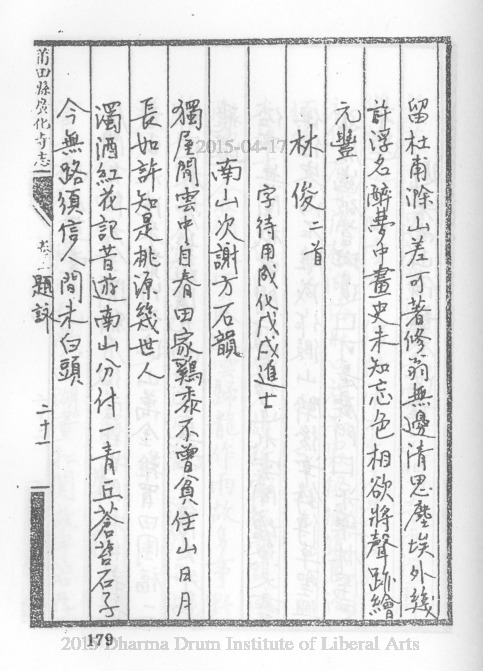 留杜甫滁山差可著修翁無邊清思塵埃外幾
許浮名醉夢中畫史未知忘色相欲將聲跡繪
元豐
林俊 二首
字待用成化戊戌進士
南山次謝方石韻
獨屋閒雲中自春田家鷄黍不曾貧住山日月
長如許知是桃源幾世人
濁酒紅花記昔遊南山分付一青丘蒼苔石子
今無路須信人間未白頭
莆田縣廣化寺志
卷二 題詠 二十一
179
2015-04-17
2015 Dharma Drum Institute of Liberal Arts